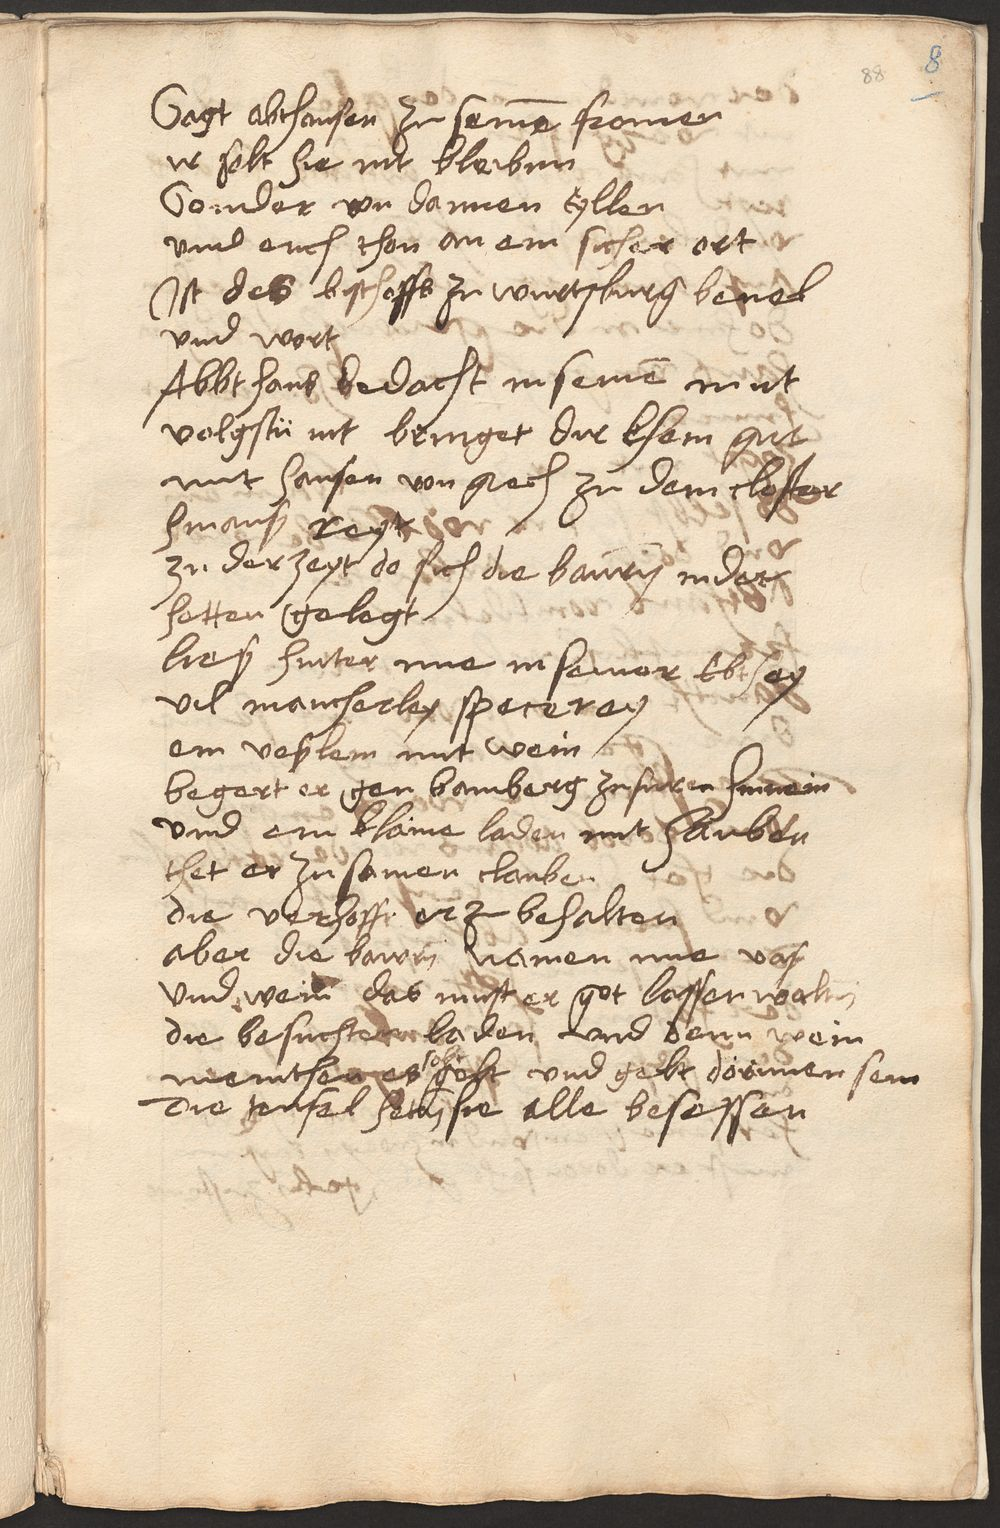 88
8
Sagt abt hansen zu seinē fromen
ir solt hie nit bleiben
Sonder von dannen eyllen
vnnd euch thon an ein sicher ort
Ist des bischoffs zu wurtzburg beuel
vnnd wort
Abbt hans bedacht in seinē mut
volgstu nit bringet dir khein gut
mit hansen von zu dem closter
hinauß reyt
zu der zeyt do sich die baurn in der
hetten gelegt
ließ hinter ime in seiner Ebthey
vil mancherley specerey
ein veßlein mit wein
begert er gen bamberg zu furen hinnein
vnnd ein klaine laden mit hauben
thet er zu samen clauben
die verhofft er zu behalten
aber die baurn namen ime vaß
vnnd wein das must er got lassen walten
die besuchten laden vnnd denn wein
mainthen es solt golt vnnd gelt dorinnen sein
die teufel hetten sie alle besessen